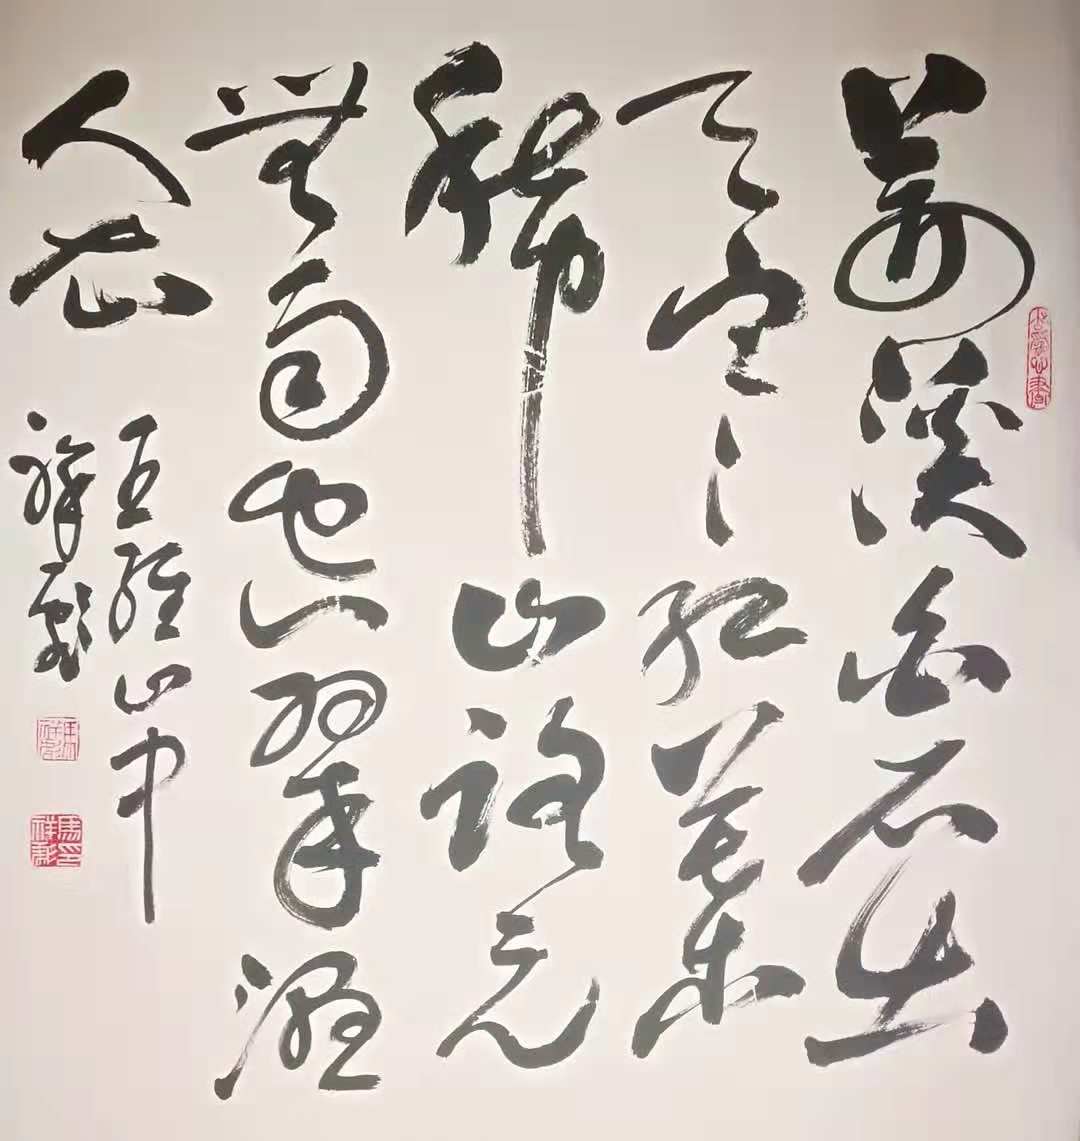 荆溪白石出
天寒红叶
稀山路元
无雨空翠湿
人衣
王维山中
祥彪